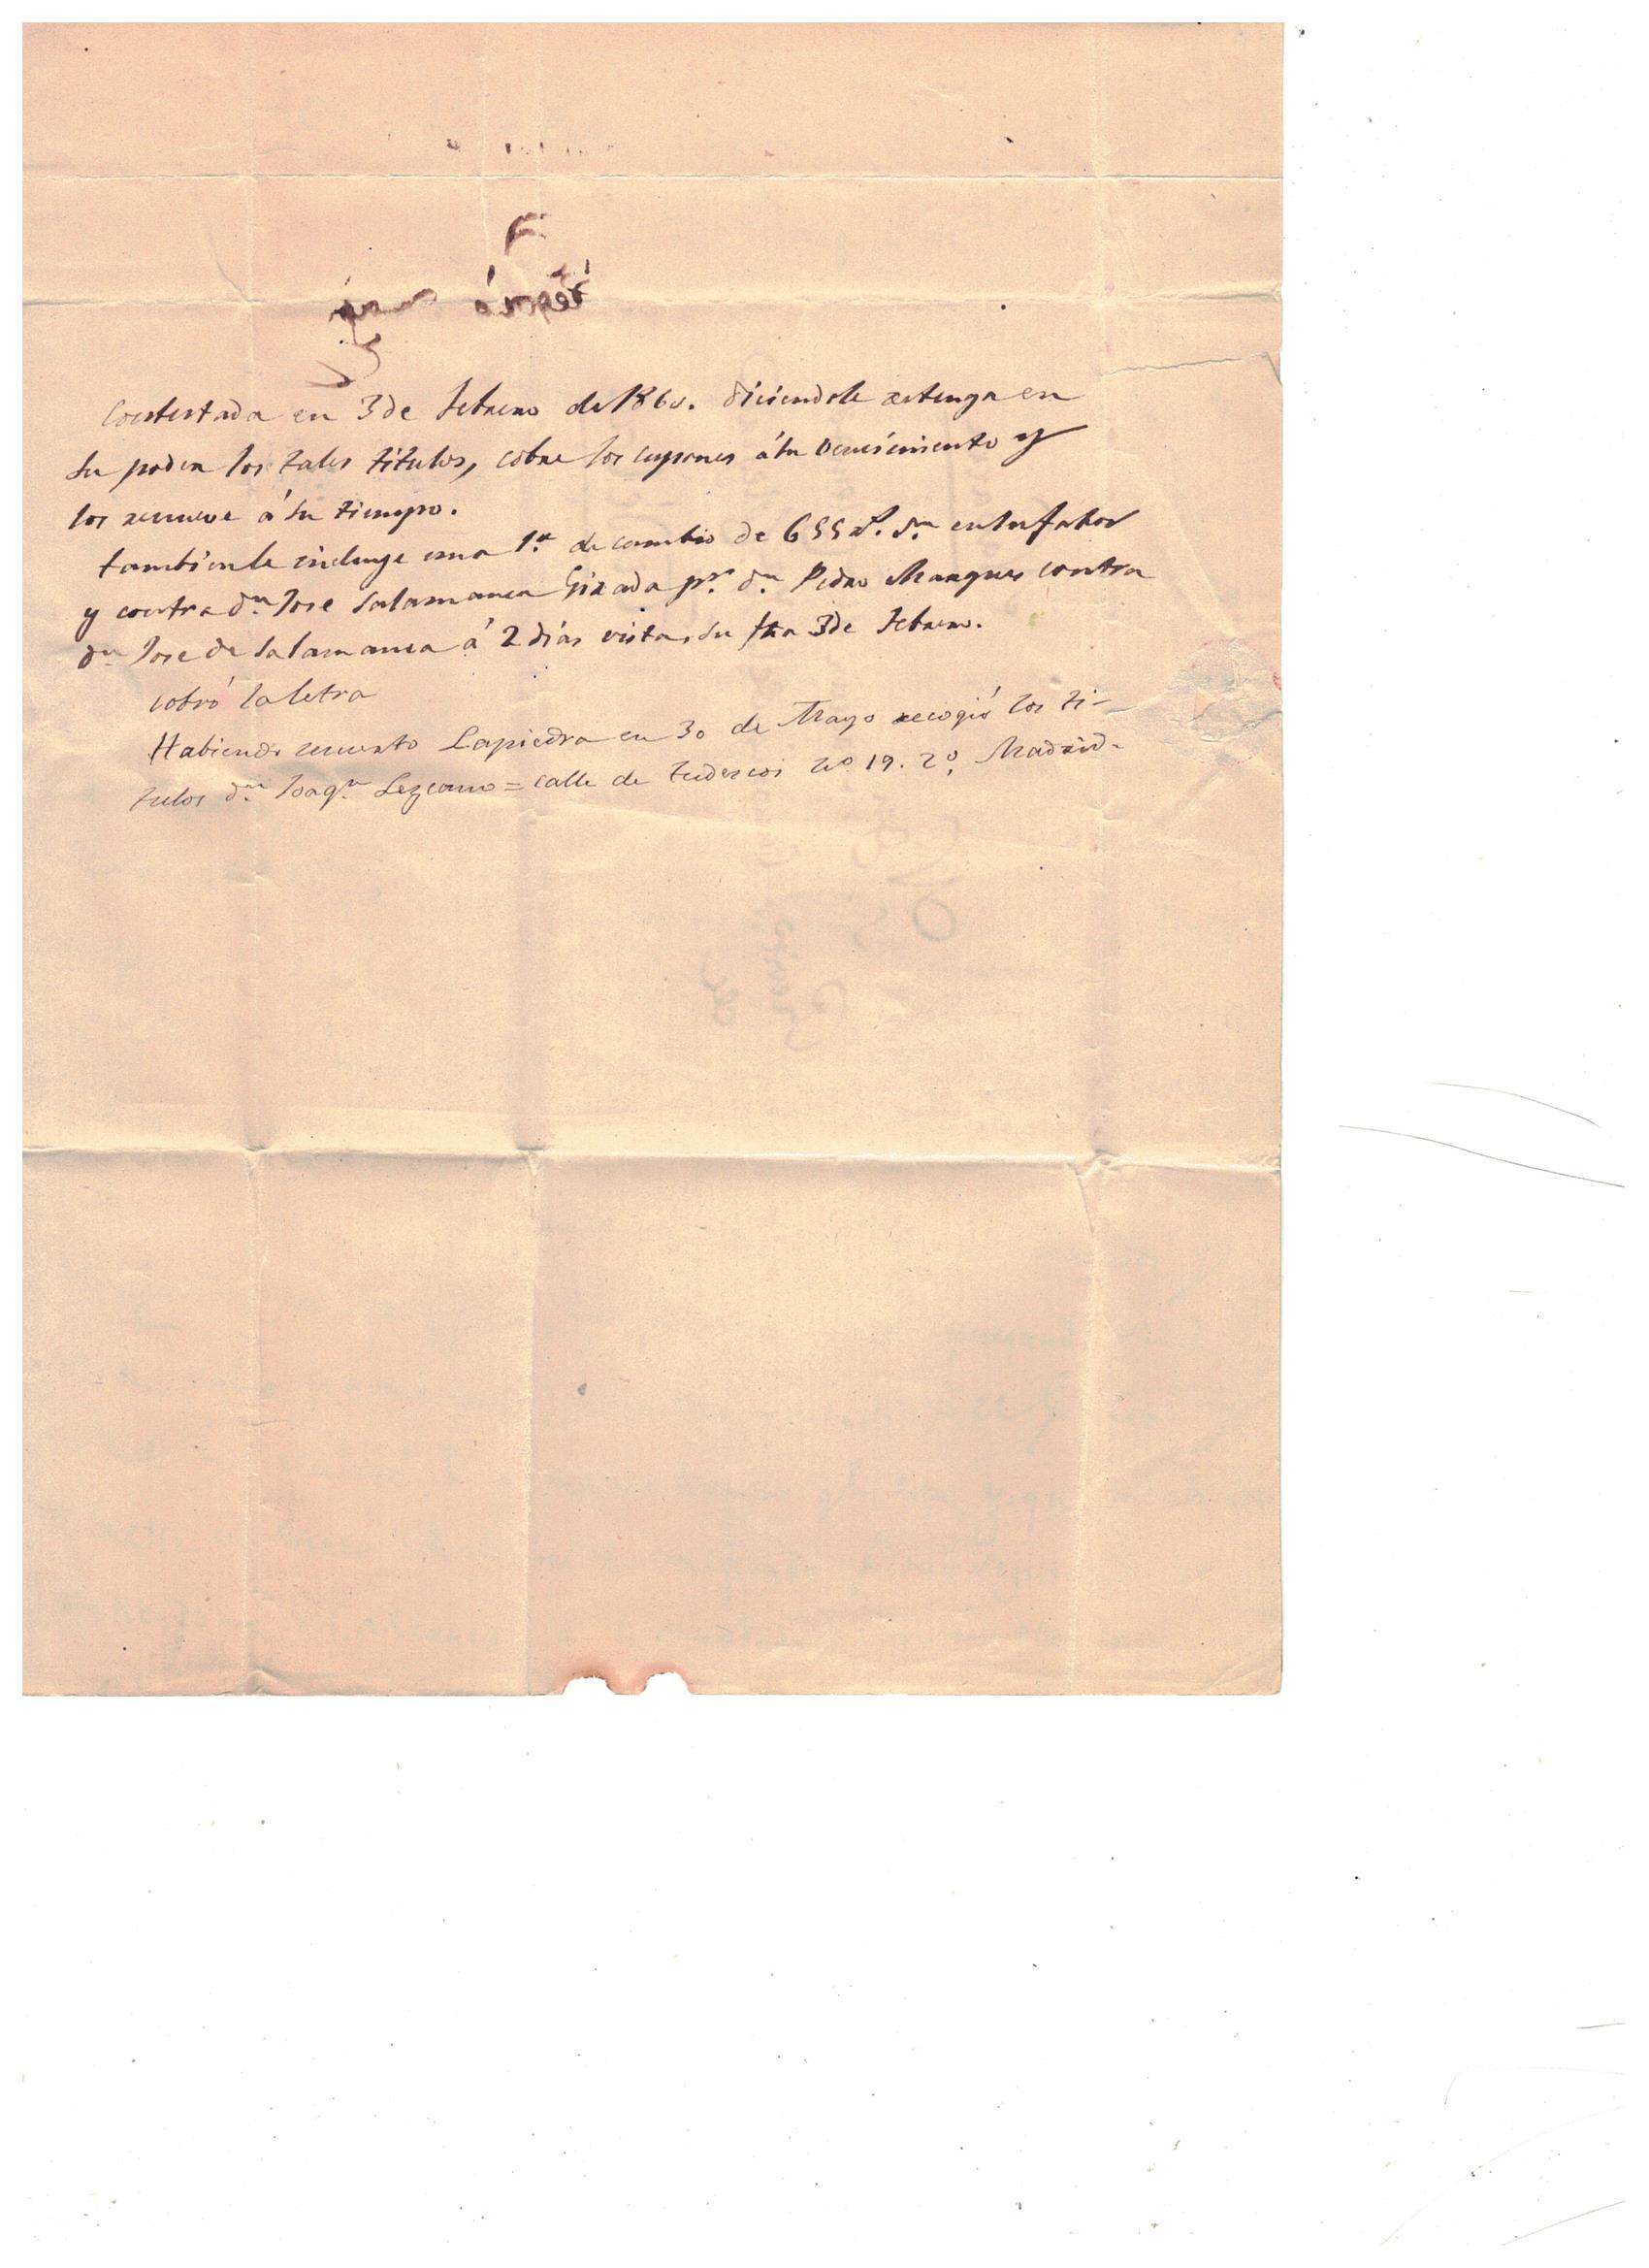 Contestada en 3 de Febrero de 1860. diciendole retenga en
su poder los tales titulos, cobre los cupones á su vencimiento y
los renueve á su tiempo.
tambien le incluye una 1.ª de cambio de 655 rs. vn en su fabor
y contra dn Jose Salamanca Girada pr. dn Pedro Marques contra
dn Jose de Salamanca á 2 dias vista, su fha 3 de Febrero.
cobró la letra
Habiendo muerto Lapiedra en 30 de Mayo recogió los ti-
tulos dn Joaqn Lezcano = calle de Tudescos no 19. 2o, Madrid.